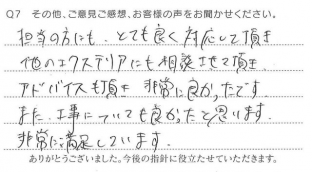 Q7 その他、ご意見ご感想、お客様の声をお聞かせください。
担当の方にも、とても良く対応して頂き
他のエクステリアにも相談させて頂き
アドバイスも頂き 非常に良かったです。
また、工事についても良かったと思います。
非常に満足しています。
ありがとうございました。今後の指針に役立たせていただきます。